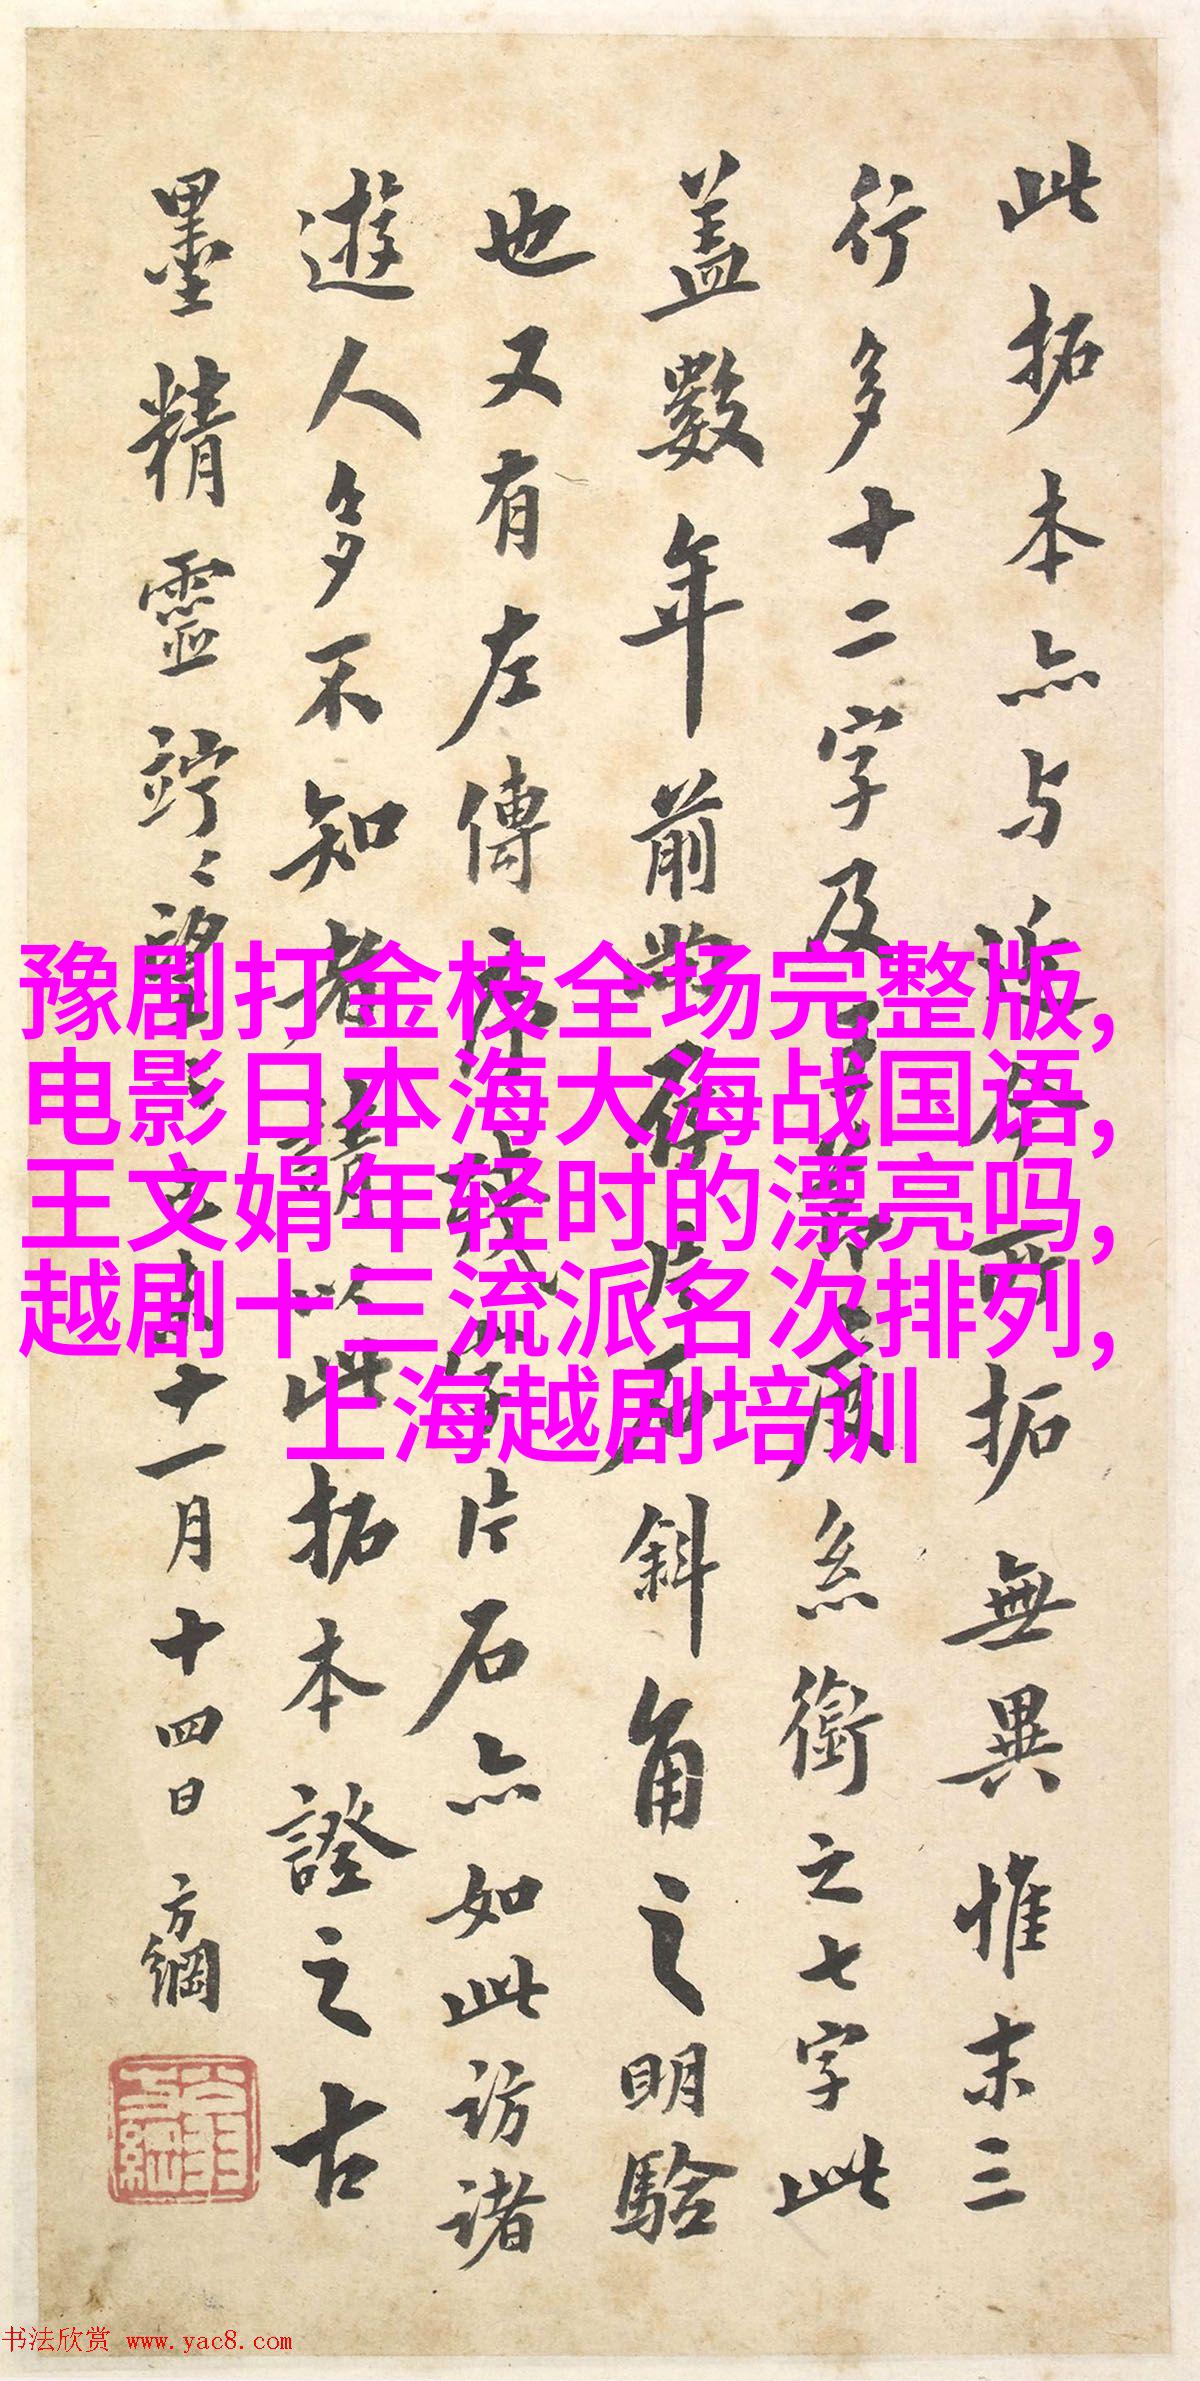 此拓本亦与近今所拓無異惟末三
行多十二字及
糸銜之七字此
蓋數年前此碑片石斜角之明驗
也又有左傳
片石亦如此訪諸
遊人多不知者
以此拓本證之古
墨精靈竚〻望
十一月十四日 方綱
豫剧打金枝全场完整版,
电影日本海大海战国语,
王文娟年轻时的漂亮吗,
越剧十三流派名次排列,
上海越剧培训
书法欣赏 www.yac8.com